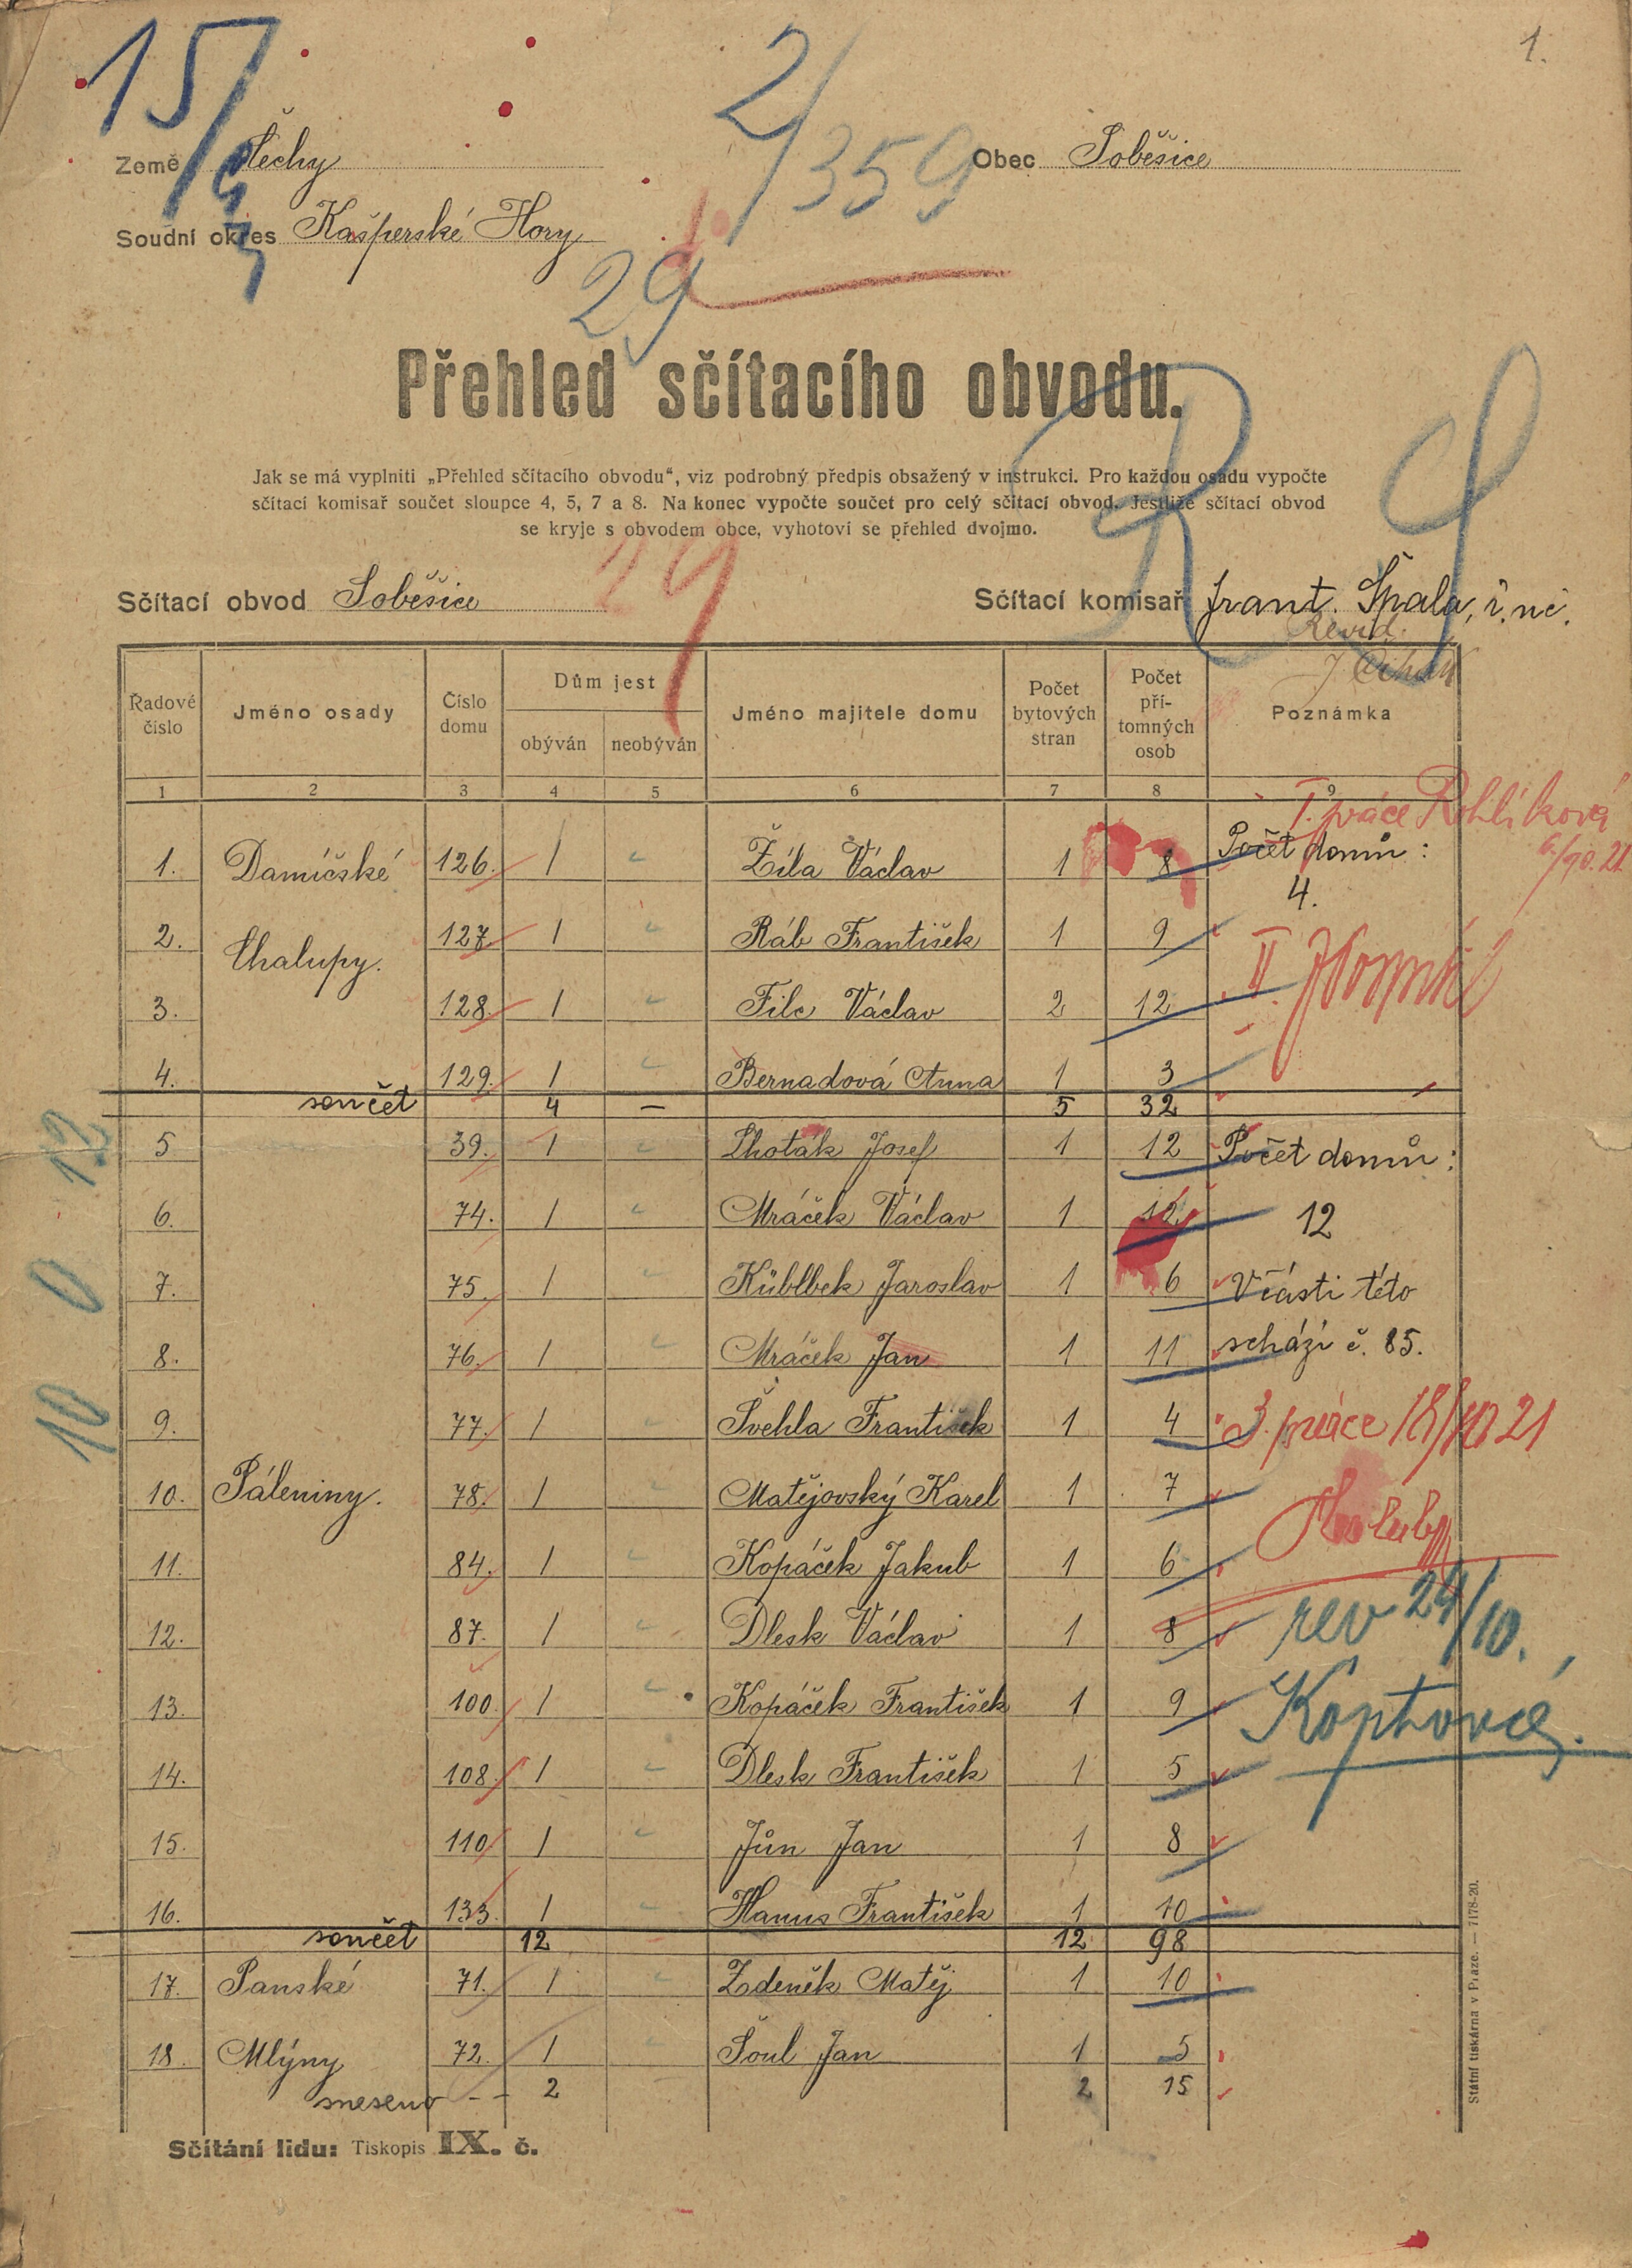 1.
15/
2/359
29
Země Čechy
Obec Soběšice
Soudní okres Kašperské Hory
Přehled sčítacího obvodu.
Jak se má vyplniti „Přehled sčítacího obvodu“, viz podrobný předpis obsažený v instrukci. Pro každou osadu vypočte
sčítací komisař součet sloupce 4, 5, 7 a 8. Na konec vypočte součet pro celý sčítací obvod. Jestliže sčítací obvod
se kryje s obvodem obce, vyhotoví se přehled dvojmo.
29
Sčítací obvod Soběšice
Sčítací komisař Frant. Špala, ř. uč.
Revid.
Řadové číslo | Jméno osady | Číslo domu | Dům jest | Jméno majitele domu | Počet bytových stran | Počet přítomných osob | Poznámka
obýván | neobýván
1 2 3 4 5 6 7 8 9
I. práce Rohlíková
6/10.21
1. Damíčské 126. 1 Žíla Václav 1 8 Počet domů:
4.
2. Chalupy. 127. 1 Ráb František 1 9
II.
3. 128. 1 Filc Václav 2 12
4. 129. 1 Bernadová Anna 1 3
součet 4 — 5 32
5 39. 1 Lhoták Josef 1 12 Počet domů:
6. 74. 1 Mráček Václav 1 12 12
7. 75. 1 Küblbek Jaroslav 1 6 V části této
8. 76. 1 Mráček Jan 1 11 schází č. 85.
9. 77. 1 Švehla František 1 4 3. práce 18/10 21
10. Páleniny. 78. 1 Matějovský Karel 1 7
Holub
11. 84. 1 Kopáček Jakub 1 6
12. 87. 1 Dlesk Václav 1 8 rev 24/10.
13. 100. 1 Kopáček František 1 9
14. 108. 1 Dlesk František 1 5
15. 110 1 Jůn Jan 1 8
16. 133. 1 Hanus František 1 10
součet 12 12 98
17. Panské 71. 1 Zdeněk Matěj 1 10
18. Mlýny 72. 1 Šoul Jan 1 5
sneseno - - 2 2 15
12
0
10
Sčítání lidu: Tiskopis IX. č.
Státní tiskárna v Praze. — 7178-20.